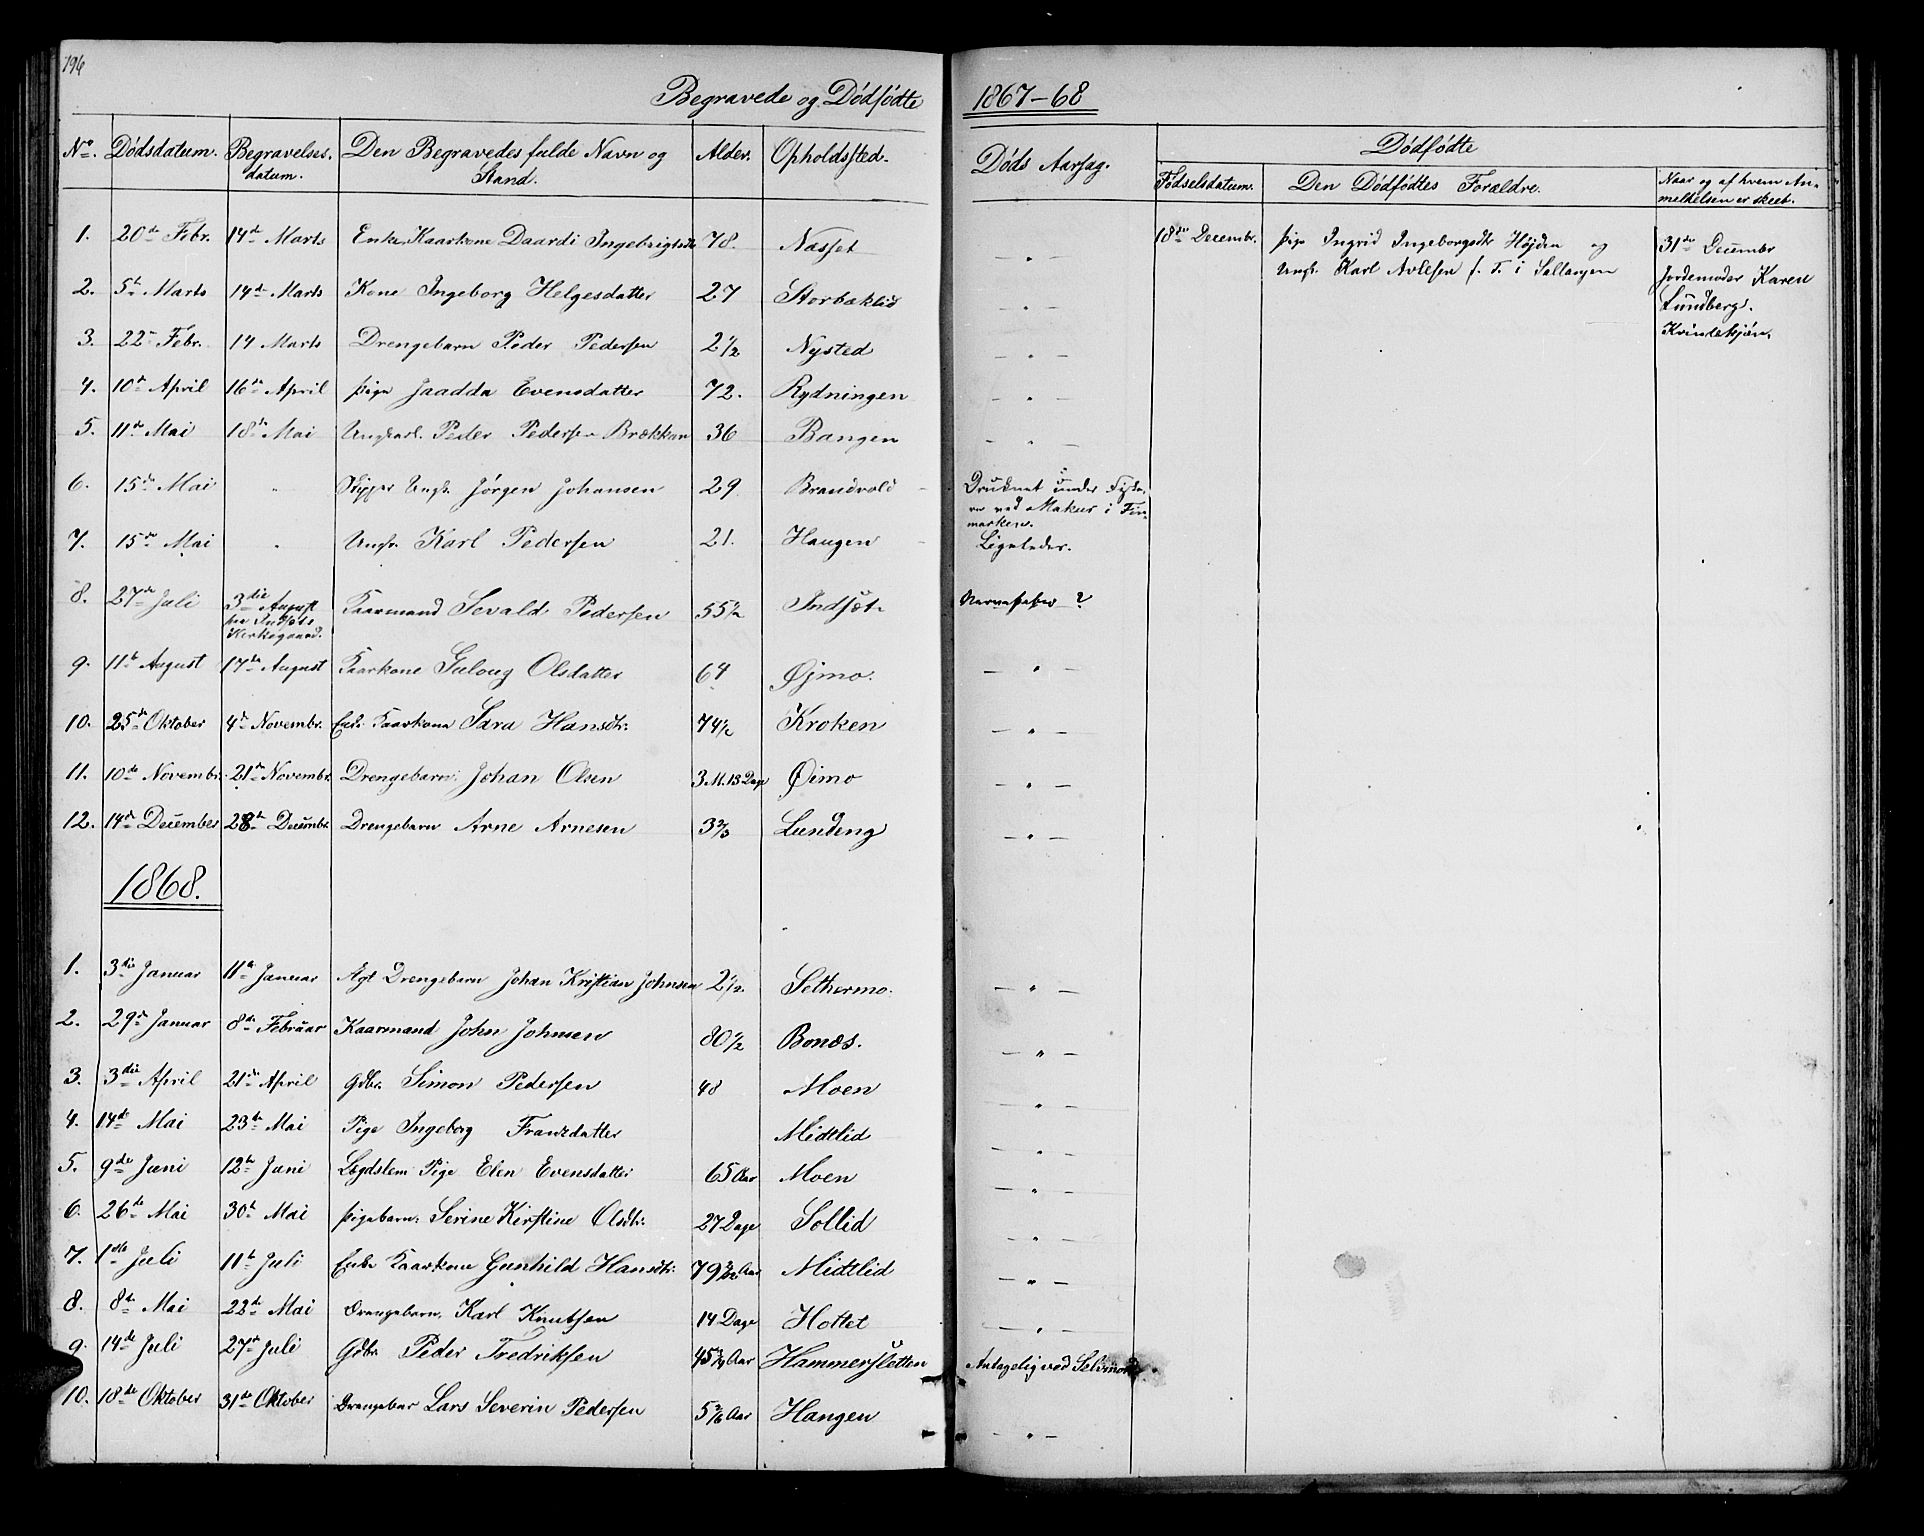 196
Begravede og Dødfødte 1867-68
No. Dødsdatum. Begravelses- Den Begravedes fulde Navn og Alder. Opholdssted. Døds Aarsag. Dødfødte
datum. Stand. Fødselsdatum. Den Dødfødtes Forældre. Naar og af hvem An-
meldelsen er skeet.
1. 20de Febr. 14de Marts Enke Kaarkone Daardi Ingebrigtsdtr 78. Nasset — " — 18de Decembr. Pige Ingrid Ingeborgsdtr Højden og 31te Decembr
Ungk. Karl Avlesen f. T. i Sallangen Jordemoder Karen
2. 5te Marts 14de Marts Kone Ingeborg Helgesdatter 27 Storbaklid — " — Lundberg.
Kvindekjøn.
3. 22de Febr. 14 Marts Drengebarn Peder Pedersen 2 1/2 Nysted — " —
4. 10de April 16de April Pige Jaadda Evensdatter 72. Rydningen — " —
5. 11te Mai 18de Mai Ungkarl. Peder Pedersen Brækkan 36 Bangen — " —
6. 15de Mai " Skipper Ungk. Jørgen Johansen 29 Brandvold Druknet under
ved Makur i Fin-
marken.
7. 15de Mai " Ungk. Karl Pedersen 21. Haugen Ligeledes.
8. 27de Juli 3die August Kaarmand Sevald Pedersen 55 1/2 Indset Nervefeber ?
paa Indsets
Kirkegaard.
9. 11te August 17de August Kaarkone Guloug Olsdatter 64 Øjmo. — " —
10. 25de Oktober 4de Novembr. Enke Kaarkone Sara Hansdtr. 74 1/2 Kroken — " —
11. 10de Novembr. 21de Novembr. Drengebarn Johan Olsen 3 M. 13 Dage Øimo — " —
12. 14de December 28de Decembr. Drengebarn Arne Arnesen 3 2/3 Lundeng — " —
1868.
1. 3die Januar 11te Januar Ægt Drengebarn Johan Kristian Johnsen 2 1/2. Sethermo. — " —
2. 29de Januar 8de Februar Kaarmand John Johnsen 80 1/2 Bonæs. — " —
3. 3die April 21de April Gdbr. Simon Pedersen 48 Moen — " —
4. 14de Mai 23de Mai Pige Ingeborg Fransdatter Midtlid — " —
5. 9de Juni 12te Juni Lægdslem Pige Elen Evensdatter 65 Aar Moen — " —
6. 26de Mai 30te Mai Pigebarn: Serine Kirstine Olsdtr. 27 Dage Sollid — " —
7. 1ste Juli 11te Juli Enke Kaarkone Gunhild Hansdtr. 79 Aar Midtlid — " —
8. 8de Mai 22de Mai Drengebarn. Karl Knutsen 14 Dage Hottet — " —
9. 14de Juli 27de Juli Gdbr Peder Fredriksen 45 Aar Hammersletten Antagelig ved Selvmord.
10. 18de Oktober 31te Oktober Drengebar Lars Severin Pedersen 5 Aar Haugen — " —